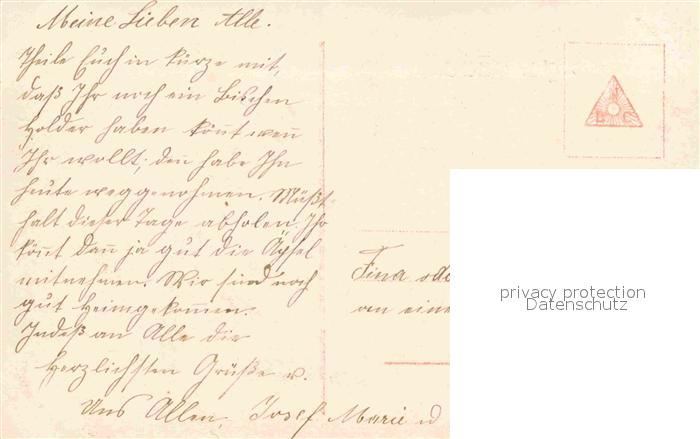 Meine Lieben Alle.
Theile Euch in kürze mit,
daß Ihr noch ein Bischen
Holder haben könt wen̄
Ihr wollt; den habe Ihn
heute weggenohmen. Müßt
halt dieser Tage abholen. Ihr
kön̄t dan̄ ja gut die Äpfel
mitnehmen. Wir sind noch
gut heimgekom̄en.
Indeß an Alle die
Herzlichsten Grüße u.
Uns Allen, Josef Marie u
N
B C
Fina ode
an eine
privacy protection
Datenschutz